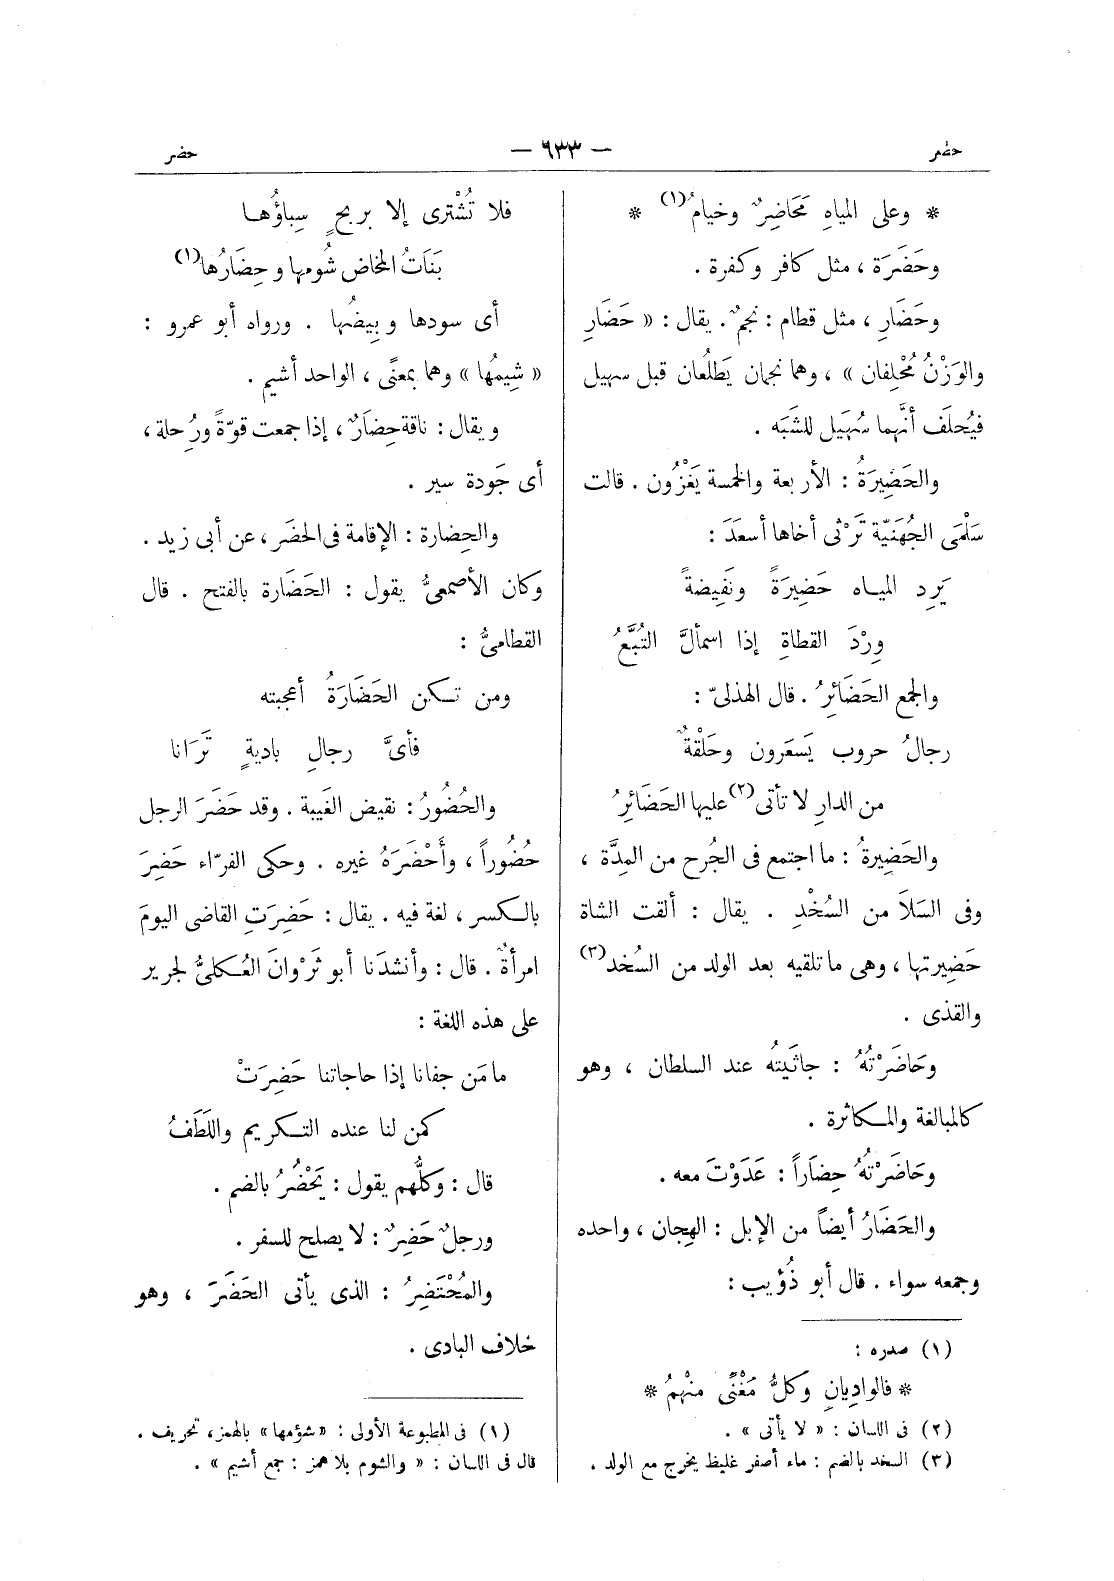 حضر
— ٦٣٣ —
حضر
* وعلى المياهِ مَحَاضِرٌ وخيامُ(١) *
وحَضَرَة ، مثل كافر وكفرة .
وحَضَارِ ، مثل قطام : نجمٌ . يقال : « حَضَارِ
والوَزْنُ مُحْلِفان » ، وهما نجمان يَطلُعان قبل سهيل
فيُحلَف أنَّهما سُهَيل للشَبَه .
والحَضِيرَةُ : الأربعة والخمسة يَغْزُون . قالت
سَلْمَى الجُهَنيّة تَرْثى أخاها أسعَدَ :
يَرِد الميـاه حَضِيرَةً ونَفِيضةً
وِرْدَ القطاةِ إذا اسمألَّ التُبَّعُ
والجمع الحَضَائرُ . قال الهذلىّ :
رجالُ حروب يَسعَرون وحَلْقةٌ
من الدارِ لا تأتى(٢) عليها الحَضَائِرُ
والحَضِيرةُ : ما اجتمع فى الجُرح من المِدَّة ،
وفى السَلَا من السُخْدِ . يقال : ألقت الشاة
حَضِيرتها ، وهى ما تلقيه بعد الولد من السُخد(٣)
والقذى .
وحَاضَرْتُهُ : جاثَيتُه عند السلطان ، وهو
كالمبالغة والمـكاثرة .
وحَاضَرْتُهُ حِضَاراً : عَدَوْتَ معه .
والحَضَارُ أيضاً من الإبل : الهِجان ، واحده
وجمعه سواء . قال أبو ذُؤَيب :
(١) صدره :
* فالواديانِ وكلُّ مَغْنًى منْهمُ *
(٢) فى اللسان : « لا يأتى » .
(٣) السخد بالضم : ماء أصفر غليظ يخرج مع الولد .
فلا تُشْترى إلا بربحٍ سِباؤُهـا
بَنَاتُ المخاض شُومها وحِضَارُها(١)
أى سودها وبِيضُها . ورواه أبو عمرو :
« شِيمُها » وهما بمعنًى ، الواحد أشيم .
ويقال : ناقة حِضَارٌ ، إذا جمعت قوّةً ورُحلة ،
أى جَودة سير .
والحِضارة : الإقامة فى الحضَر ، عن أبى زيد .
وكان الأصمعىُّ يقول : الحَضَارة بالفتح . قال
القطامىُّ :
ومن تـكن الحَضَارَةُ أعجبته
فأىَّ رجالِ باديةٍ تَرَانا
والحُضُورُ : نقيض الغَيبة . وقد حَضَرَ الرجل
حُضُوراً ، وأَحْضَرَهُ غيره . وحكى الفرّاء حَضِرَ
بالـكسر ، لغة فيه . يقال : حَضِرَتِ القاضى اليومَ
امرأةٌ . قال : وأنشدَنا أبو ثَرْوانَ العُـكلىُّ لجرير
على هذه اللغة :
ما مَن جفانا إذا حاجاتنا حَضِرَتْ
كمن لنا عنده التـكريم واللَطَفُ
قال : وكلُّهم يقول : يَحْضُرُ بالضم .
ورجلٌ حَضِرٌ : لا يصلح للسفر .
والمُحْتَضِرُ : الذى يأتى الحَضَرَ ، وهو
خلاف البادى .
(١) فى المطبوعة الأولى : « شؤمها » بالهمز ، تحريف .
قال فى اللسان : « والشوم بلا همز : جمع أشيم » .